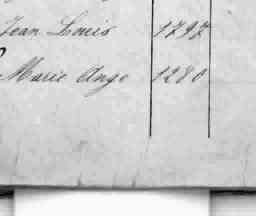 Jean Louis 1797
Marie Ange 1280